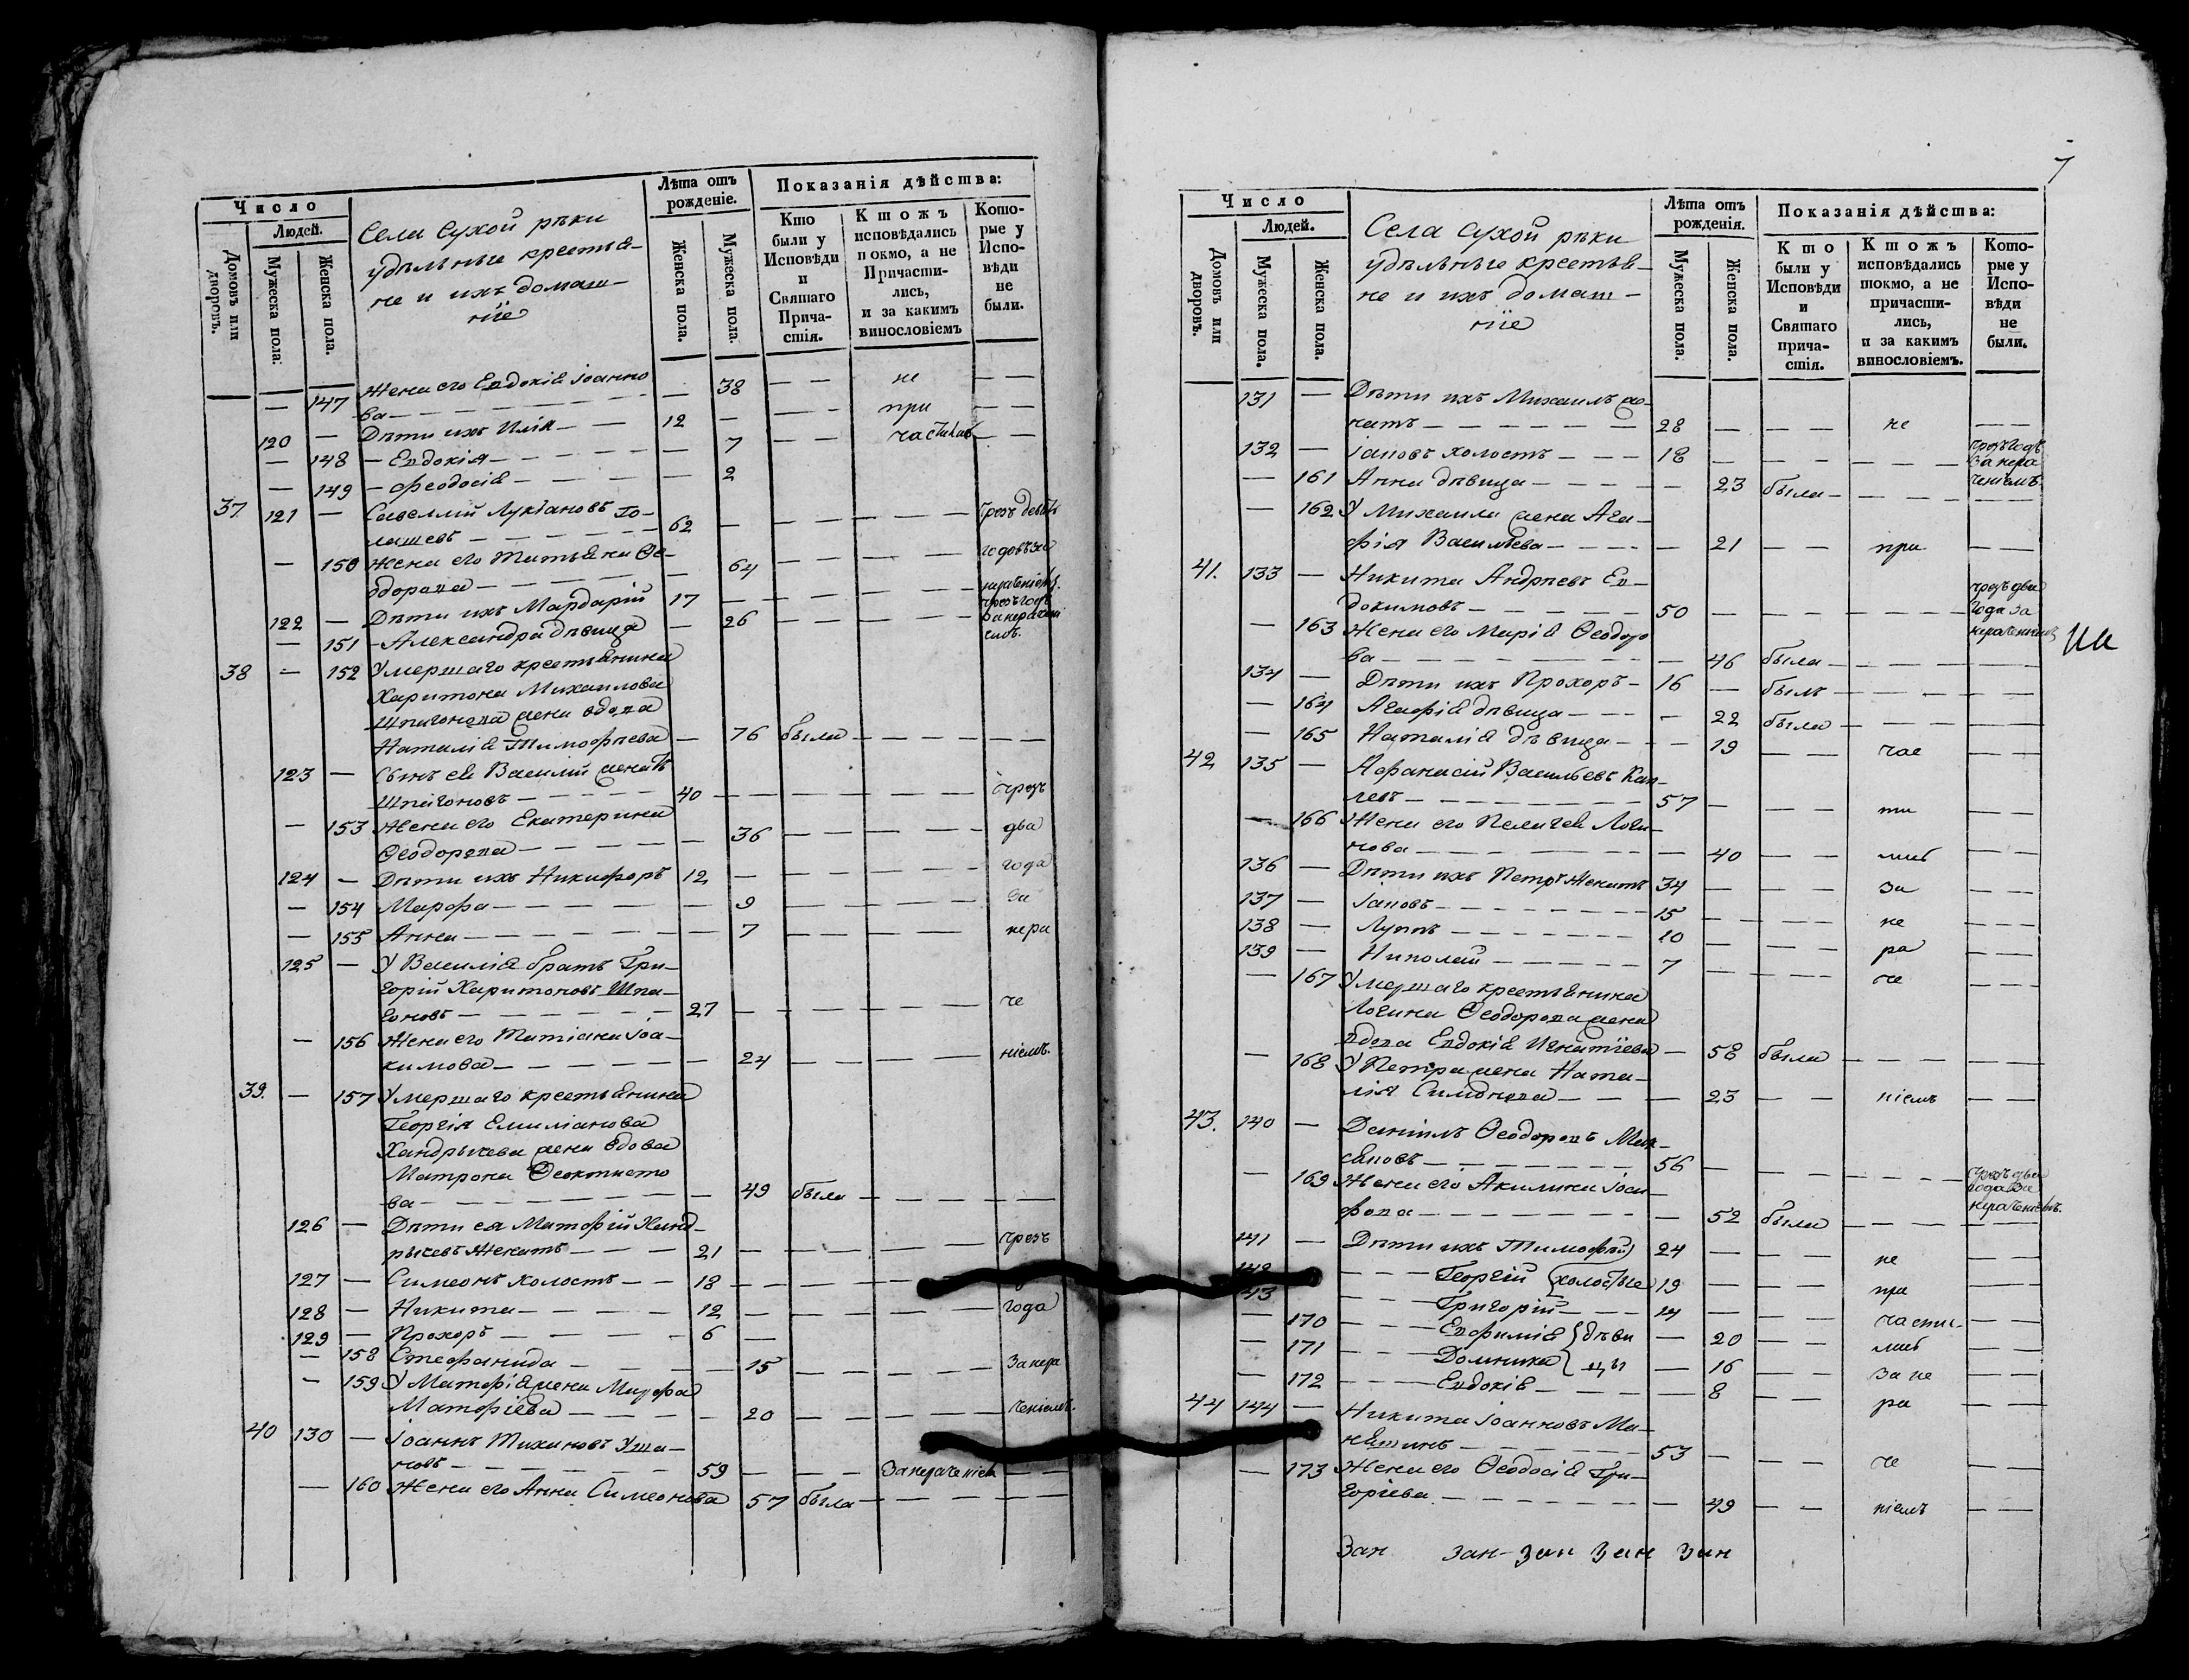 Число
Людей.
Домовъ или дворовъ.
Мужеска пола.
Женска пола.
Села Сухой рѣки
удѣльные крестья-
не и ихъ домаш-
ніе
Лѣта отъ рожденіе.
Женска пола.
Мужеска пола.
Показанія дѣйства:
Кто были у Исповѣди и Святаго Прича-стія.
Ктожъ исповѣдались покмо, а не Причасти-лись, и за какимъ винословіемъ
Кото-рые у Испо-вѣди не были.
— 147 Жена его Евдокія Іоанно — 38 — — не — —
ва — — — при — —
120 — Дѣти ихъ Илія — — 12 —
— 148 — Евдокія — — — 7 — —
— 149 — Феодосія — — — 2
37 121 — Савелій Лукіановъ Го-
лашевъ — — — 62 — — — —
— 150 Жена его Татьяна Ѳе-
одорова — — — 64 — — — годовъ за
122 — Дѣти ихъ Мардарій 17 — — — чрезъ годъ
— 151 — Александра дѣвица — 26 — — —
38 — 152 Умершаго крестьянина
Харитона Михаилова
Шпигонова жена вдова
Наталія Тимофѣева — 76 была — — —
123 — Сынъ ея Василій женатъ
Шпигоновъ — — 40 — — — чрезъ
— 153 Жена его Екатерина
Ѳеодорова — — — 36 — — — два
124 — Дѣти ихъ Никифоръ 12 — — — года
— 154 Марфа — — — 9 — — — за
— 155 Анна — — — 7 — — — нера
125 — У Василія братъ Гри-
горій Харитоновъ Шпи-
гоновъ — — — 27 — — — че
— 156 Жена его Татіана Іоа-
кимова — — — 24 — — — ніемъ.
39. — 157 Умершаго крестьянина
Георгія Емиліанова
Хандрычева жена вдова
Матрона Ѳеоктисто
ва — — — 49 была — — —
126 — Дѣти ея Матфій Ханд-
рычевъ женатъ — — 21 — — — чрезъ
127 — Симеонъ холостъ — — 18 — — —
128 — Никита — — — 12 — — — года
129 — Прохоръ — — — 6 —
— 158 Стефанида — — — 15 — — — за нера
— 159 У Матфія жена Марфа
Матфіева — — — 20 — — — ченіемъ.
40 130 — Іоаннъ Тихановъ Уша-
новъ — — — 59 — — — За нераченіем — —
— 160 Жена его Анна Симеонова 57 была — — —
7
Число
Людей.
Домовъ или дворовъ.
Мужеска пола.
Женска пола.
Села Сухой рѣки
удѣльные крестья-
не и ихъ домаш-
ніе
Лѣта отъ рожденія.
Мужеска пола.
Женска пола.
Показанія дѣйства:
Кто были у Исповѣди и Святаго прича-стія.
Ктожъ исповѣдались токмо, а не причасти-лись, и за какимъ винословіемъ.
Кото-рые у Испо-вѣди не были.
131 — Дѣти ихъ Михаилъ же-
натъ — — — 28 — — — не — —
132 — Іаковъ холостъ — — — 18 — — — чрезъ годъ за нера ченіемъ
— 161 Анна дѣвица — — — 23 была — — —
— 162 У Михаила жена Ага-
фія Васильева — — — 21 — — при — —
41. 133 — Никита Андреевъ Ев-
докимовъ — — — 50 — — — чрезъ два года за нераченіемъ
— 163 Жена его Марія Ѳеодоро
ва — — — 46 была — — —
на
134 — Дѣти ихъ Прохоръ — 16 — былъ — — —
— 164 Агафія дѣвица — — — 22 была — — —
— 165 Наталія дѣвица — — 19 — — час — —
42 135 — Афанасій Васильевъ Кап-
левъ — — — 57 — — — ти — —
— 166 Жена его Пелагея Логи-
нова — — — 40 — — лис — —
136 — Дѣти ихъ Петръ женатъ 34 — — — за — —
137 — Іаковъ — — — 15 — — — не — —
138 — Луппъ — — — 10 — — — ра — —
139 — Николай — — — 7 — — — че — —
— 167 Умершаго крестьянина
Логина Ѳеодорова жена
вдова Евдокія Игнатіева — 58 была — — —
— 168 У Петра жена Ната-
лія Симонова — — — 23 — — ніемъ — —
43. 140 — Даніилъ Ѳеодоровъ Мак-
сановъ — — — 56 — — — чрезъ два года за нераченіемъ.
— 169 Жена его Акилина Іоси-
фова — — — 52 была — — —
141 — Дѣти ихъ Тимофей 24 — — — не — —
142 — — — Георгій (холостые) 19 — — — при — —
43 — — — Григорій — — 14 — — — части- — —
— 170 — — — Евфимія } дѣви — 20 — — лис — —
— 171 — — — Домника } цы — 16 — — за не — —
— 172 — — — Евдокія — — — 8 — — ра — —
44 144 — Никита Іоанновъ Ма-
някинъ — — — 53 — — — че — —
— 173 Жена его Ѳеодосія Гри-
горіева — — — 49 — — ніемъ — —
Зан зан- зан зан зан